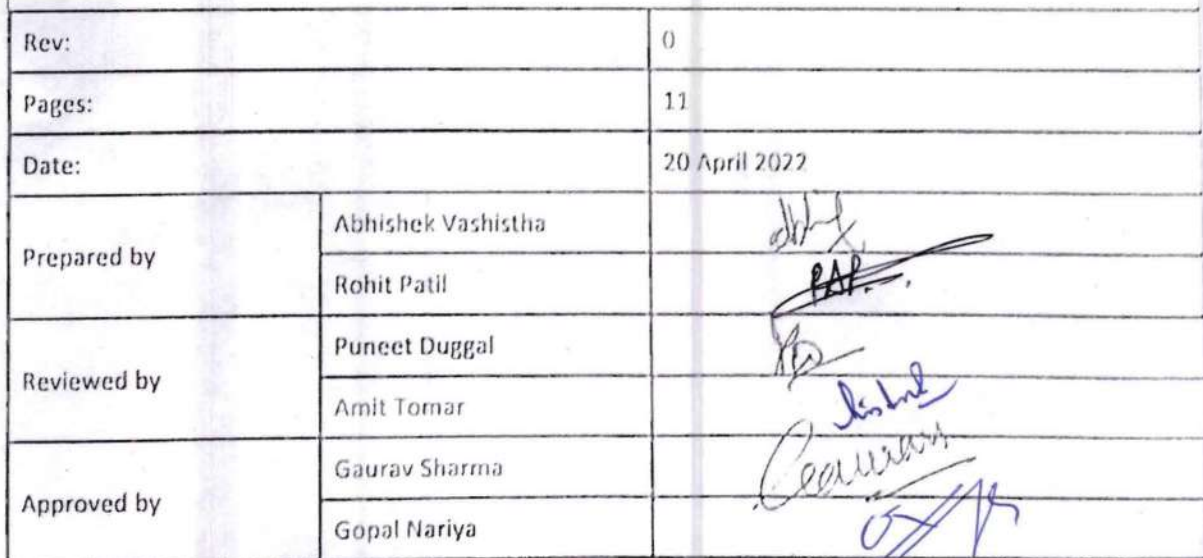 Rev: 0
Pages: 11
Date: 20 April 2022
Prepared by
Abhishek Vashistha
Rohit Patil
PAP.
Reviewed by
Puneet Duggal
Amit Tomar
Approved by
Gaurav Sharma
Gopal Nariya